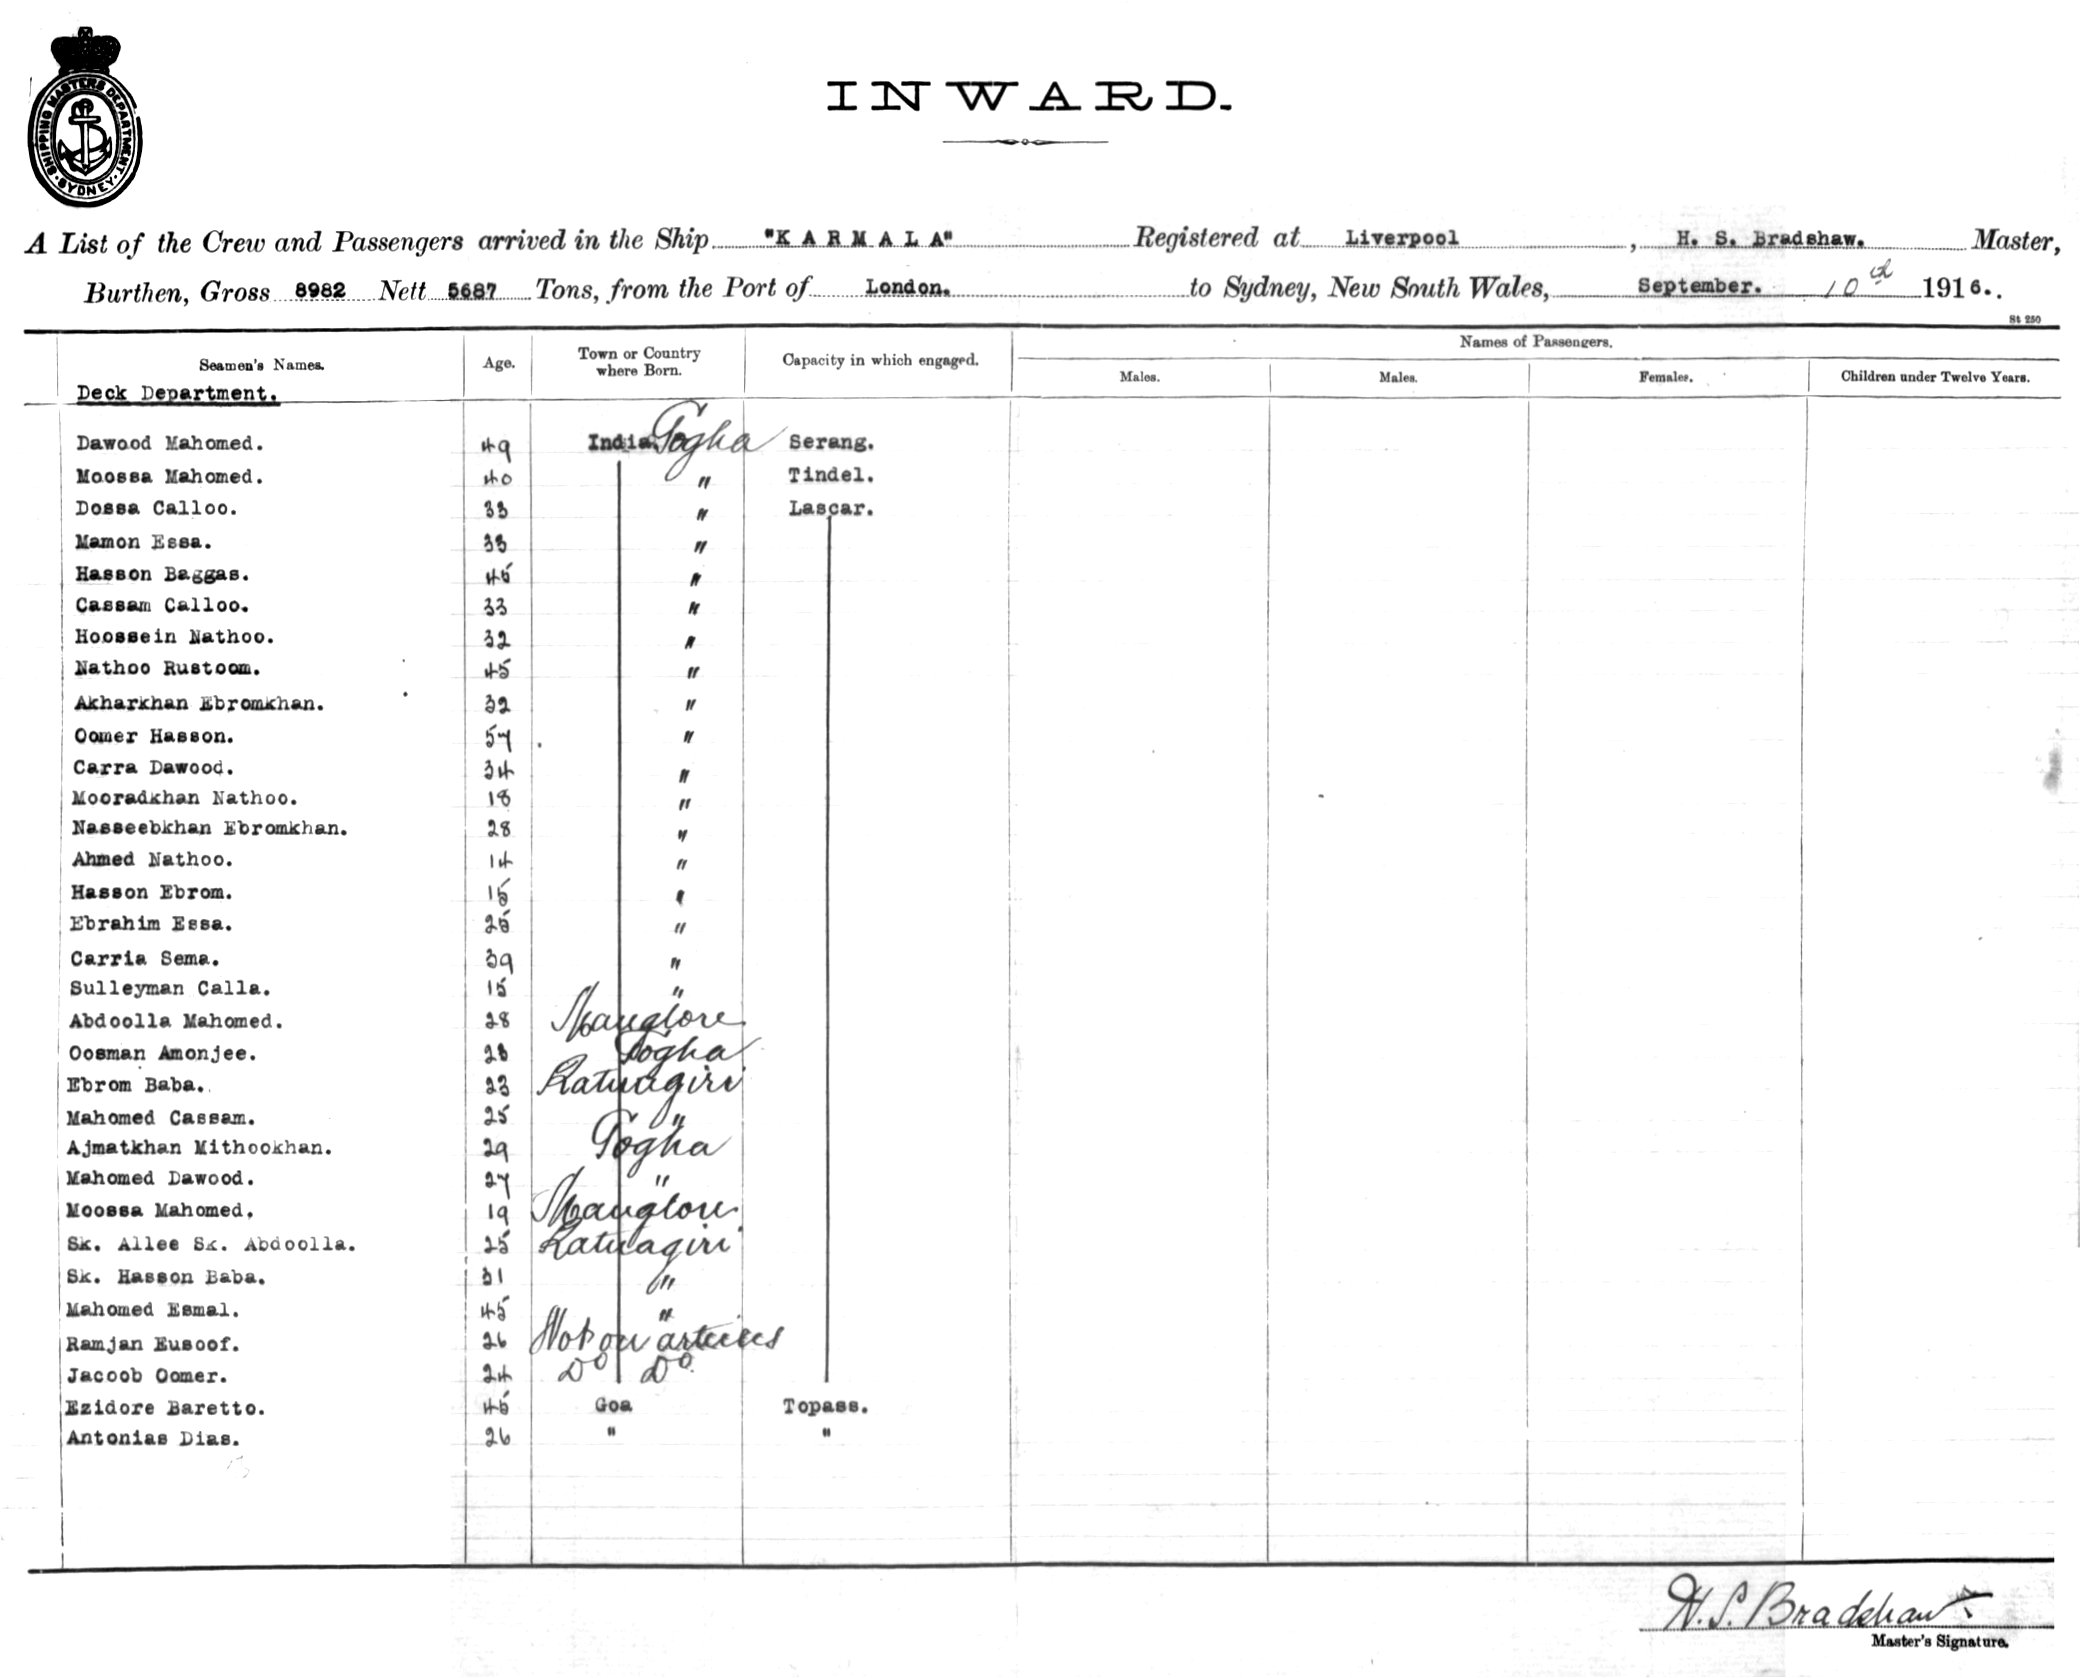 SHIPPING MASTERS DEPARTMENT · SYDNEY ·
INWARD.
A List of the Crew and Passengers arrived in the Ship "KARMALA" Registered at Liverpool, H. S. Bradshaw. Master,
Burthen, Gross 8982 Nett 5687 Tons, from the Port of London. to Sydney, New South Wales, September. 10th 1916.
St 250
Seamen's Names. Age. Town or Country where Born. Capacity in which engaged. Names of Passengers.
Males. Males. Females. Children under Twelve Years.
Deck Department.
Dawood Mahomed. 49 India. Gogha Serang.
Moossa Mahomed. 40 " Tindel.
Dossa Calloo. 33 " Lascar.
Mamon Essa. 33 "
Hasson Baggas. 45 "
Cassam Calloo. 33 "
Hoossein Nathoo. 32 "
Nathoo Rustoom. 45 "
Akharkhan Ebromkhan. 32 "
Oomer Hasson. 57 "
Carra Dawood. 34 "
Mooradkhan Nathoo. 18 "
Nasseebkhan Ebromkhan. 28 "
Ahmed Nathoo. 14 "
Hasson Ebrom. 15 "
Ebrahim Essa. 25 "
Carria Sema. 39 "
Sulleyman Calla. 15 "
Abdoolla Mahomed. 28 Manglore
Oosman Amonjee. 28 Gogha
Ebrom Baba. 23 Ratnagiri
Mahomed Cassam. 25 "
Ajmatkhan Mithookhan. 29 Gogha
Mahomed Dawood. 27 "
Moossa Mahomed. 19 Manglore
Sk. Allee Sk. Abdoolla. 25 Ratnagiri
Sk. Hasson Baba. 31 "
Mahomed Esmal. 45 "
Ramjan Eusoof. 26 Not on articles
Jacoob Oomer. 24 Do Do
Ezidore Baretto. 45 Goa Topass.
Antonias Dias. 26 " "
H. S. Bradshaw
Master's Signature.